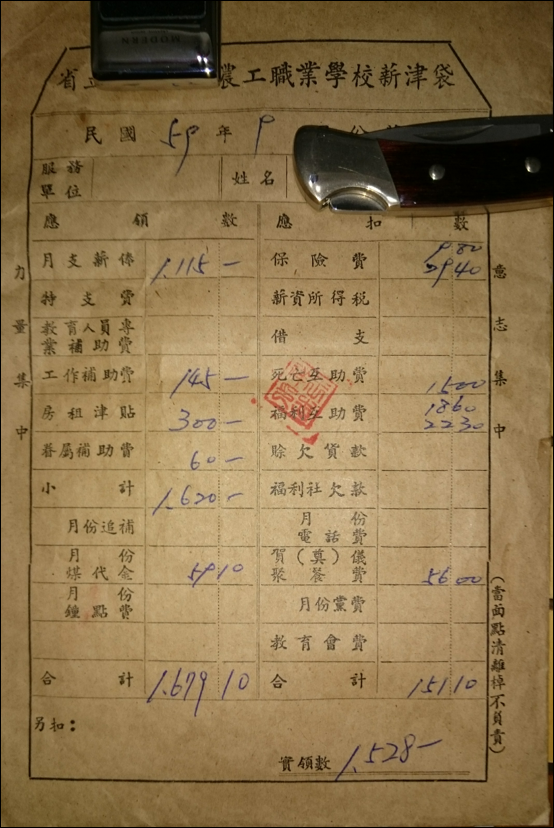 MODERN
省立 農工職業學校薪津袋
民國 59 年 9 月份
服務單位 姓名
應領數 應扣數
月支薪俸 1.115— 保險費 9 80
29 40
特支費 薪資所得稅
教育人員專業補助費 借支
工作補助費 145— 死亡互助費 15 00
房租津貼 300— 福利互助費 18 60
22 30
眷屬補助費 60— 賒欠貨款
小計 1.620— 福利社欠款
月份追補 月份電話費
月份煤代金 59 10 賀(奠)儀聚餐費 56 00
月份鐘點費 月份黨費
教育會費
合計 1.679 10 合計 151 10
另扣：
實領數 1.528—
意志集中
力量集中
(當面點清離棹不負責)